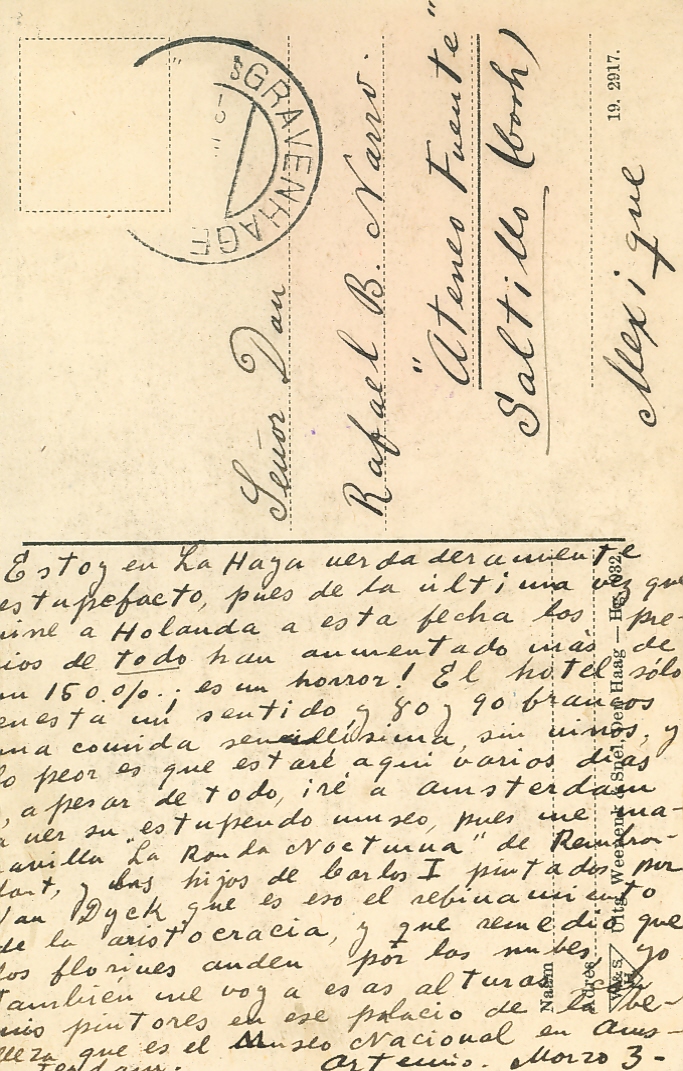 'SGRAVENHAGE
Señor Don
Rafael B. Narro.
"Ateneo Fuente"
Saltillo (Coah)
Mexique
19. 2917.
Estoy en La Haya verdaderamente
estupefacto, pues de la última vez que
vine a Holanda a esta fecha los pre-
cios de todo han aumentado más de
un 150.0/0.. es un horror! El hotel sólo
cuesta un sentido, y 80 y 90 francos
una comida sencillísima, sin vinos, y
lo peor es que estaré aquí varios días
, a pesar de todo, iré a Amsterdam
a ver su estupendo museo, pues me ma-
ravilla "La Ronda Nocturna" de Rembran-
dt, y los hijos de Carlos I pintados por
Van Dyck que es eso el refinamiento
de la aristocracia, y que remedio que
los florines anden por las nubes, yo
también me voy a esas alturas
pintores en ese palacio de la be-
lleza que es el Museo Nacional en Ams-
terdam.
Artemio. Marzo 3-
Naam
Adres
W. & S. Uitg. Weenenk & Snel, Den Haag —